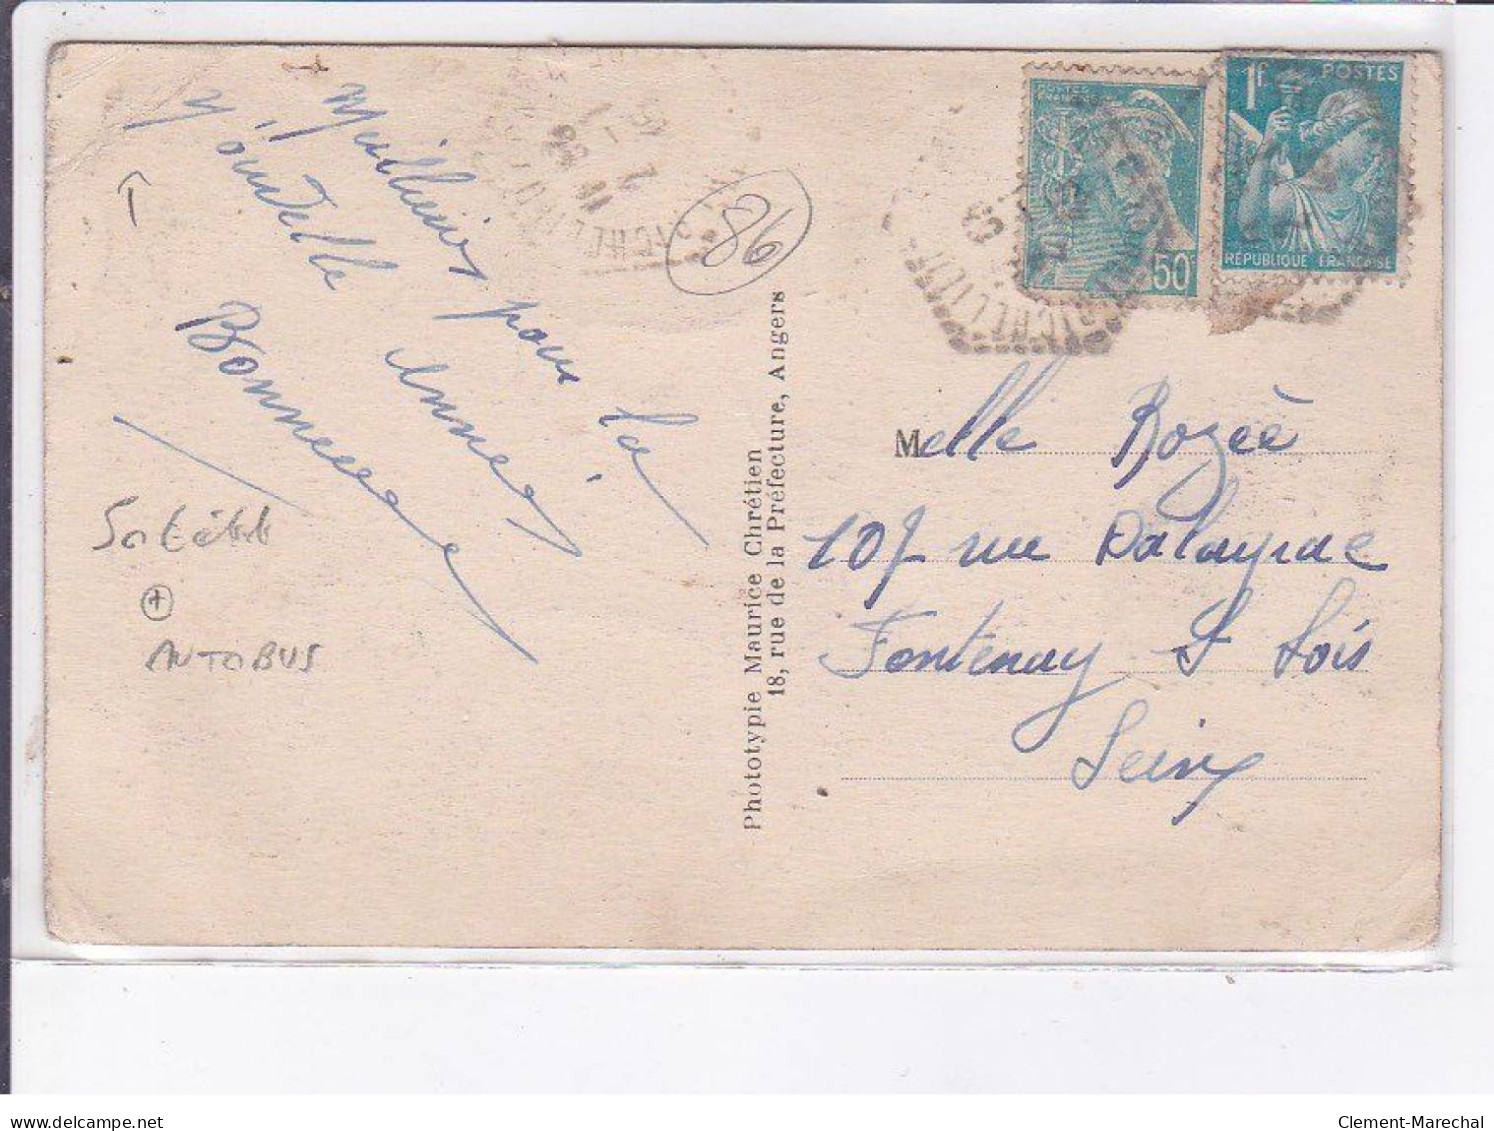 Meilleurs
pour la
nouvelle
Année
Bonneveau
86
AUTOBUS
Phototypie Maurice Chrétien
18, rue de la Préfecture, Angers
POSTES
50f
1f POSTES
RÉPUBLIQUE FRANCAISE
RICHELIEU
Melle Rozée
107 rue Dalayrac
Fontenay s Bois
Seine
www.delcampe.net
Clement-Marechal